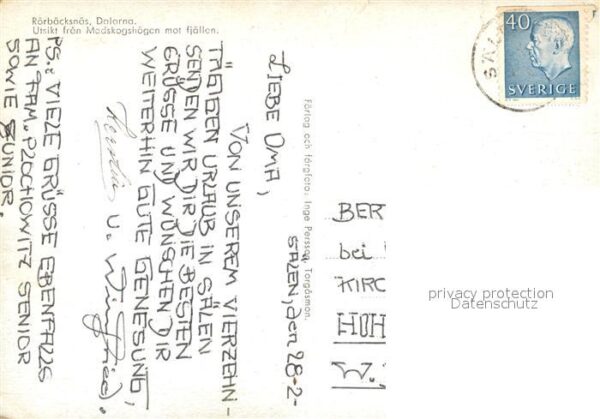 Rörbäcksnäs, Dalarna.
Utsikt från Medskogshögen mot fjällen.
SÄLEN, den 28-2-
LIEBE OMA,
VON UNSEREM VIERZEHN-
TÄGIGEN URLAUB IN SÄLEN
SENDEN WIR DIR DIE BESTEN
GRÜSSE UND WÜNSCHEN DIR
WEITERHIN GUTE GENESUNG,
u. Winfried.
PS.: VIELE GRÜSSE EBENFALLS
AN FAM. PLOCHOWITZ SENIOR
SOWIE JUNIOR.
Förlag och färgfoto: Inge Persson, Torgåsmon.
40
SVERIGE
SÄL
BER
bei
KIRC
HOH
W.
privacy protection
Datenschutz